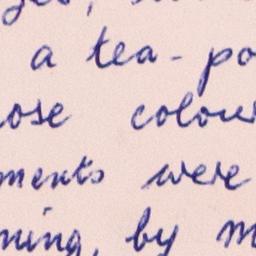 a tea-po
ose colour
ments were
ning, by m